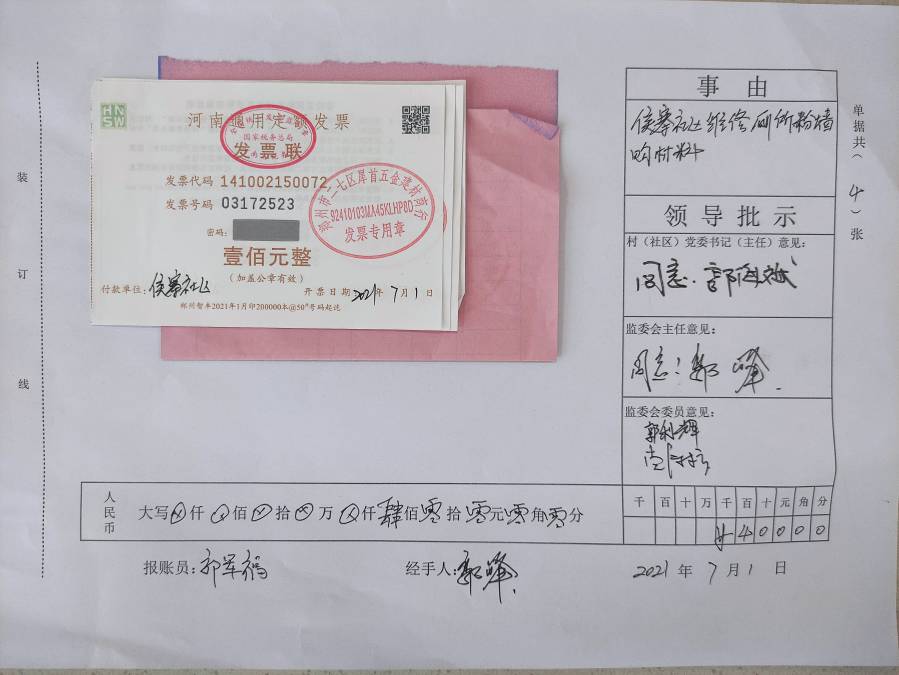 装
订
线
HN
SW
河南通用定额发票
国家税务总局
发票联
发票代码 141002150072
发票号码 03172523
密码:
郑州市二七区犀首五金建材商行
92410103MA45KLHP8D
发票专用章
壹佰元整
(加盖公章有效)
付款单位: 侯寨社区
开票日期 2021年7月1日
事由
侯寨社区维修厕所粉墙
购材料
单据共(4)张
领导批示
村(社区)党委书记(主任)意见:
同意.
监委会主任意见:
同意!
监委会委员意见:
郭利辉
人民币 大写 仟 佰 拾 万 仟肆佰零拾零元零角零分
千 百 十 万 千 百 十 元 角 分
4 0 0 0 0
报账员:
经手人:
2021年7月1日